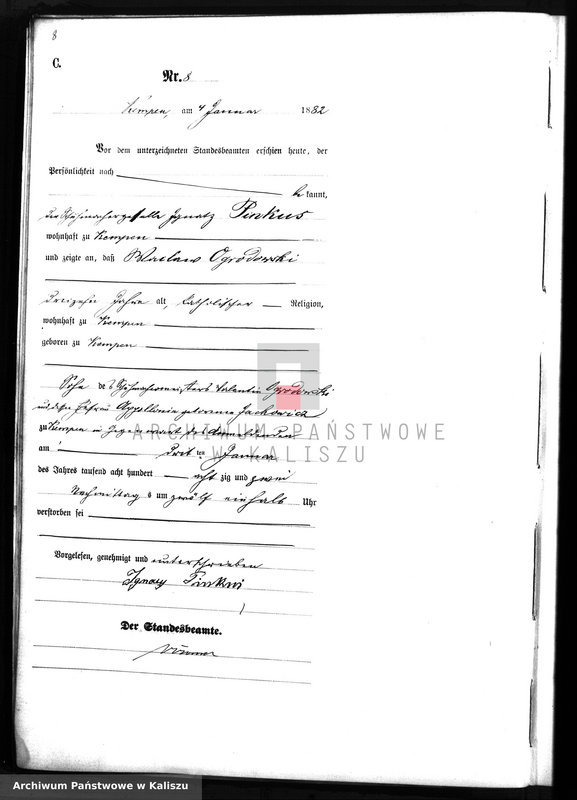 8
C.
Nr. 8
Kempen, am 4 Januar 1882
Vor dem unterzeichneten Standesbeamten erschien heute, der
Persönlichkeit nach
bekannt,
der Schuhmachergeselle Ignatz Pinkus
wohnhaft zu Kempen
und zeigte an, daß Waclaw Ogrodowski
dreizehn Jahre alt, katholischer Religion,
wohnhaft zu Kempen
geboren zu Kempen
Sohn des Schuhmachermeisters Valentin Ogrodowski
und dessen Ehefrau Appollonia geborene Jackowicz
zu Kempen in Gegenwart des
am dritten Januar
des Jahres tausend acht hundert achtzig und zwei
Nachmittags um zwölf einhalb Uhr
verstorben sei
Vorgelesen, genehmigt und unterschrieben
Ignacy
Der Standesbeamte.
ARCHIWUM PAŃSTWOWE
W KALISZU
Archiwum Państwowe w Kaliszu